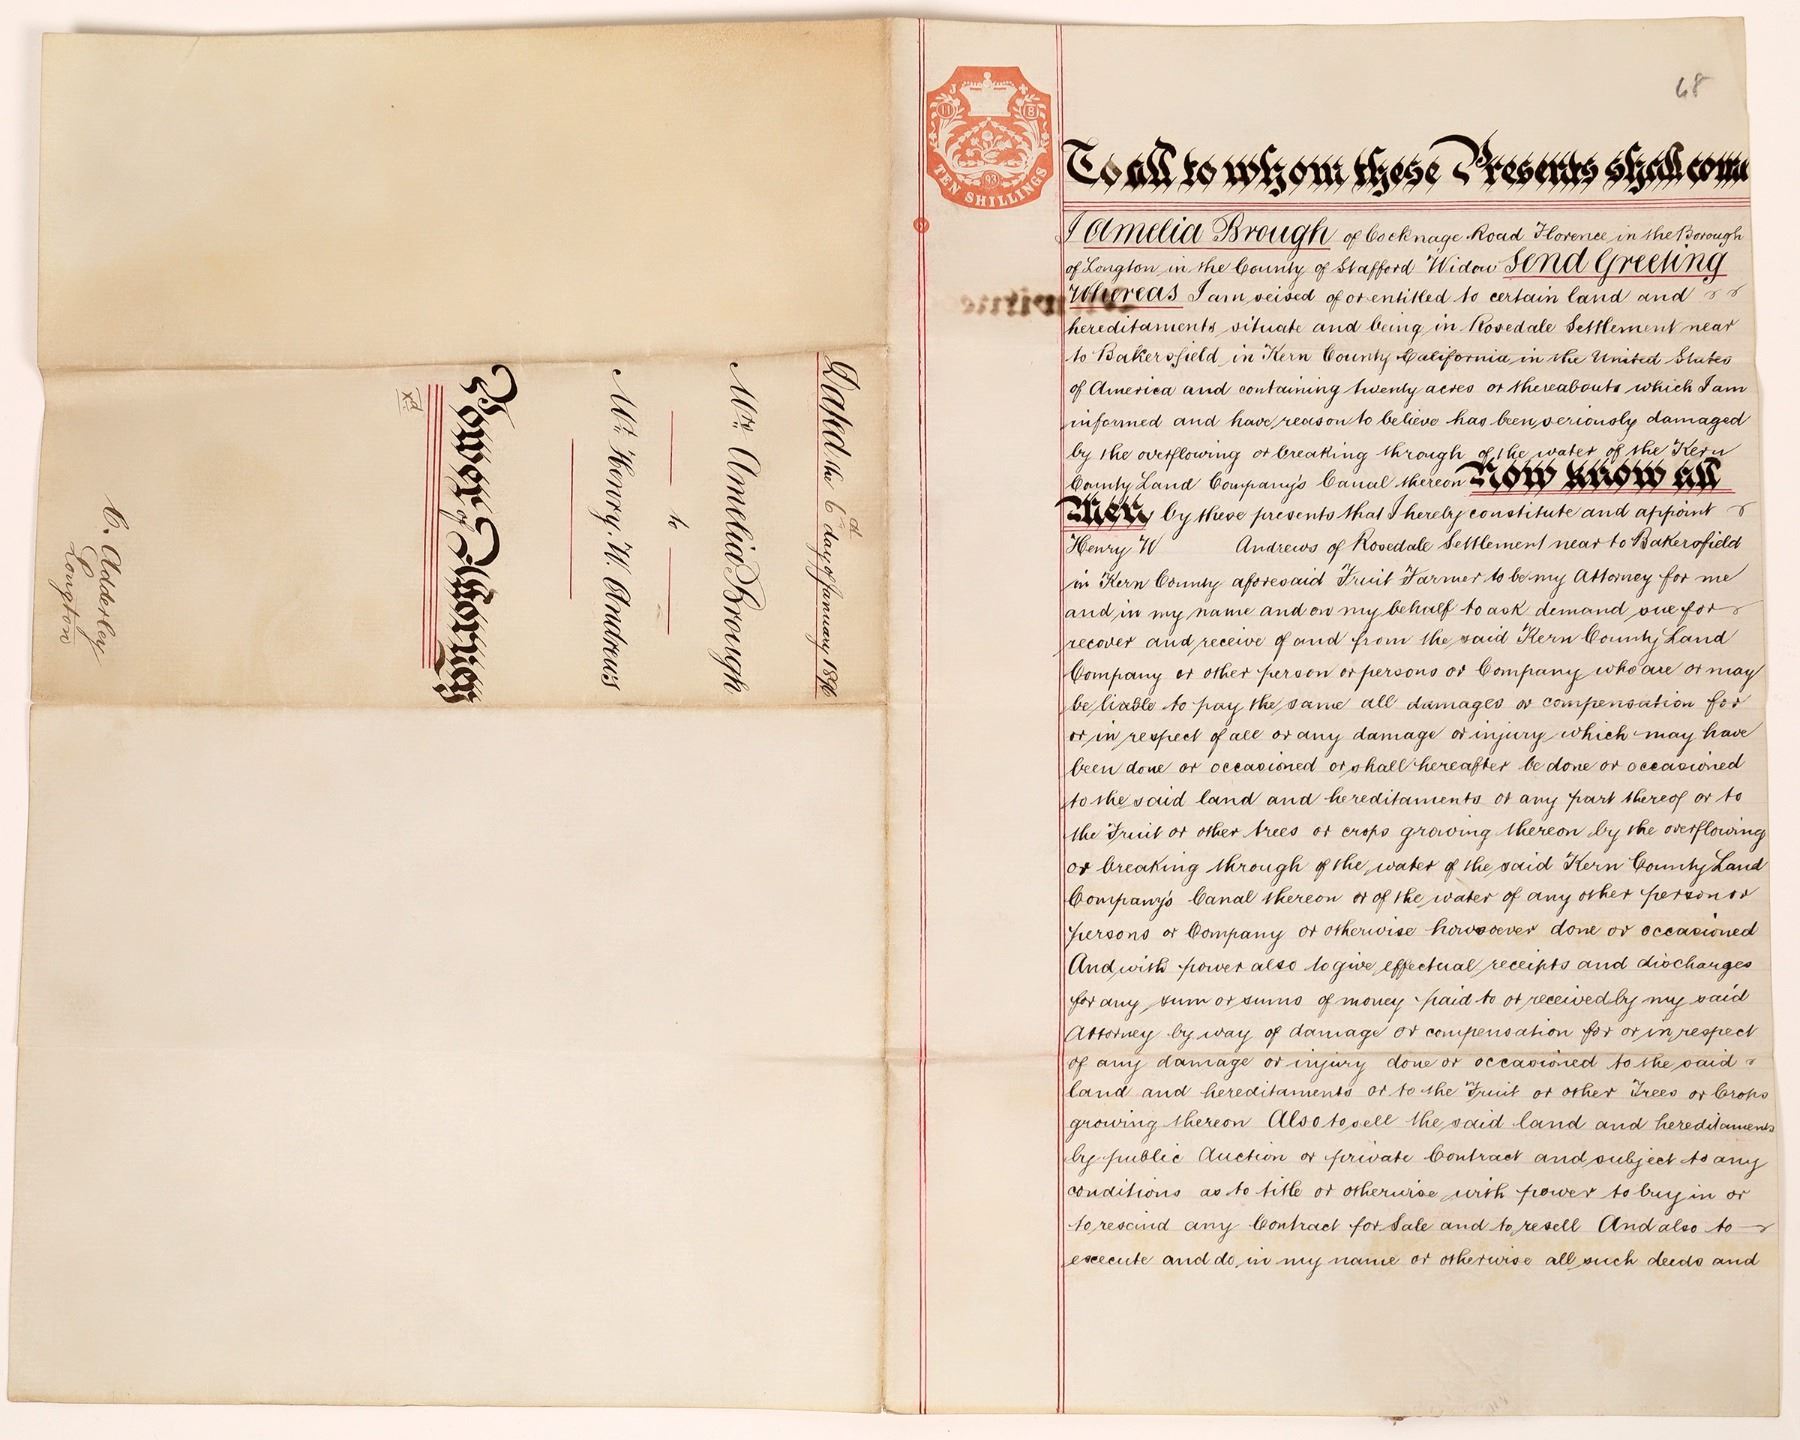 68
J 11 8 93
TEN SHILLINGS
To all to whom these Presents shall come
I Amelia Brough of Cocknage Road Florence in the Borough
of Longton in the County of Stafford Widow Send Greeting
Whereas I am seised of or entitled to certain land and
hereditaments situate and being in Rosedale Settlement near
to Bakersfield in Kern County California in the United States
of America and containing twenty acres or thereabouts which I am
informed and have reason to believe has been seriously damaged
by the overflowing or breaking through of the water of the Kern
County Land Company's Canal thereon Now know all
Men by these presents that I hereby constitute and appoint
Henry W Andrews of Rosedale Settlement near to Bakersfield
in Kern County aforesaid Fruit Farmer to be my Attorney for me
and in my name and on my behalf to ask demand sue for
recover and receive of and from the said Kern County Land
Company or other person or persons or Company who are or may
be liable to pay the same all damages or compensation for
or in respect of all or any damage or injury which may have
been done or occasioned or shall hereafter be done or occasioned
to the said land and hereditaments or any part thereof or to
the Fruit or other trees or crops growing thereon by the overflowing
or breaking through of the water of the said Kern County Land
Company's Canal thereon or of the water of any other person or
persons or Company or otherwise howsoever done or occasioned
And with power also to give effectual receipts and discharges
for any sum or sums of money paid to or received by my said
Attorney by way of damage or compensation for or in respect
of any damage or injury done or occasioned to the said
land and hereditaments or to the Fruit or other Trees or Crops
growing thereon Also to sell the said land and hereditaments
by public Auction or private Contract and subject to any
conditions as to title or otherwise with power to buy in or
to rescind any Contract for Sale and to resell And also to
execute and do in my name or otherwise all such deeds and
Dated the 6th day of January 1896
Mrs Amelia Brough
to
Mr Henry W. Andrews
Power of Attorney
C. Adderley
Longton